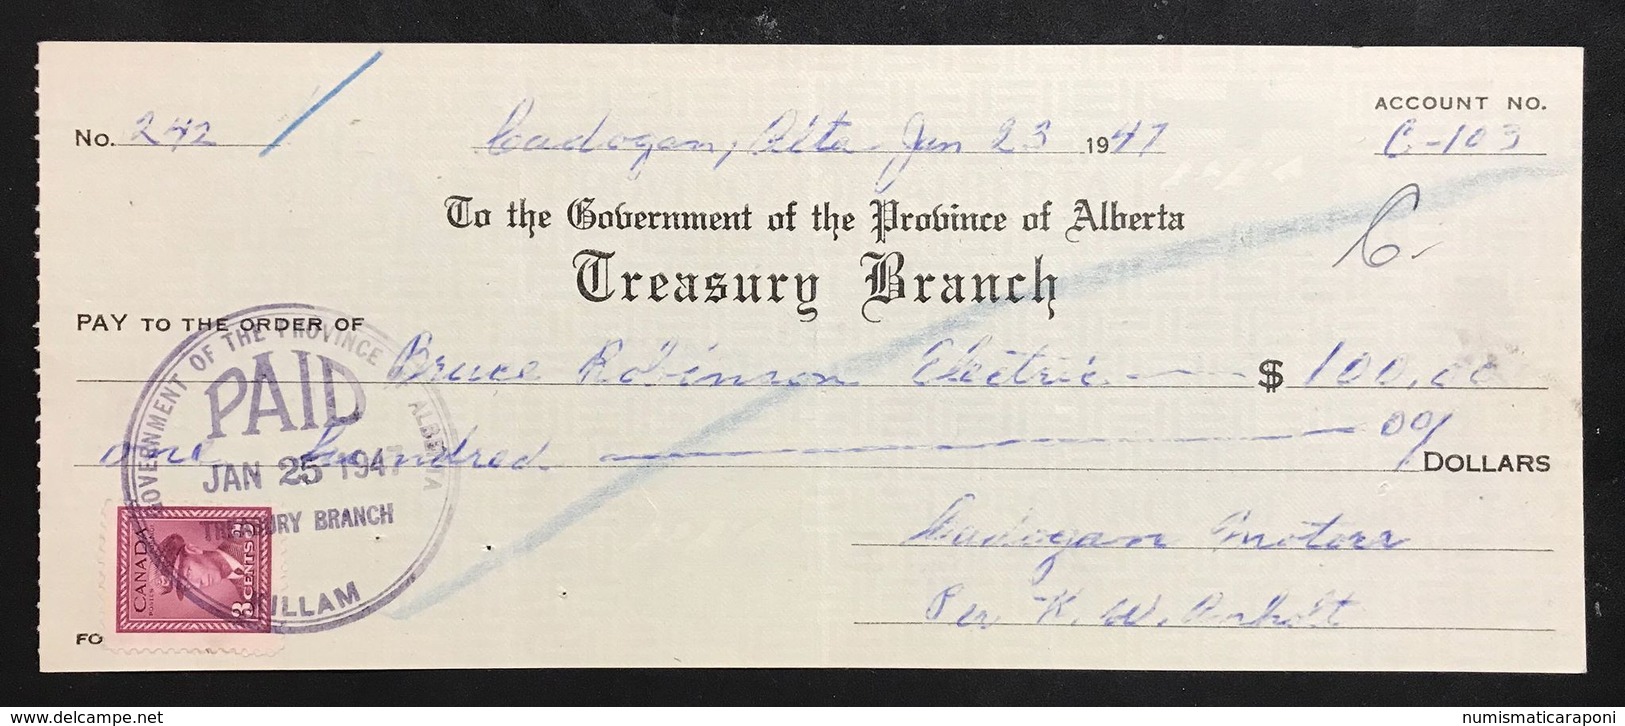 ACCOUNT NO.
No. 242 Cadogan, Alta Jan 23 1947 C-103
To the Government of the Province of Alberta
C
Treasury Branch
PAY TO THE ORDER OF
Bruce Robinson Electric $ 100.00
one hundred 00/ DOLLARS
GOVERNMENT OF THE PROVINCE ALBERTA
PAID
JAN 25 1947
TREASURY BRANCH
KILLAM
CANADA
POSTES
3 CENTS 3
Cadogan Motors
Per K. W. Anholt
FO
www.delcampe.net
numismaticaraponi